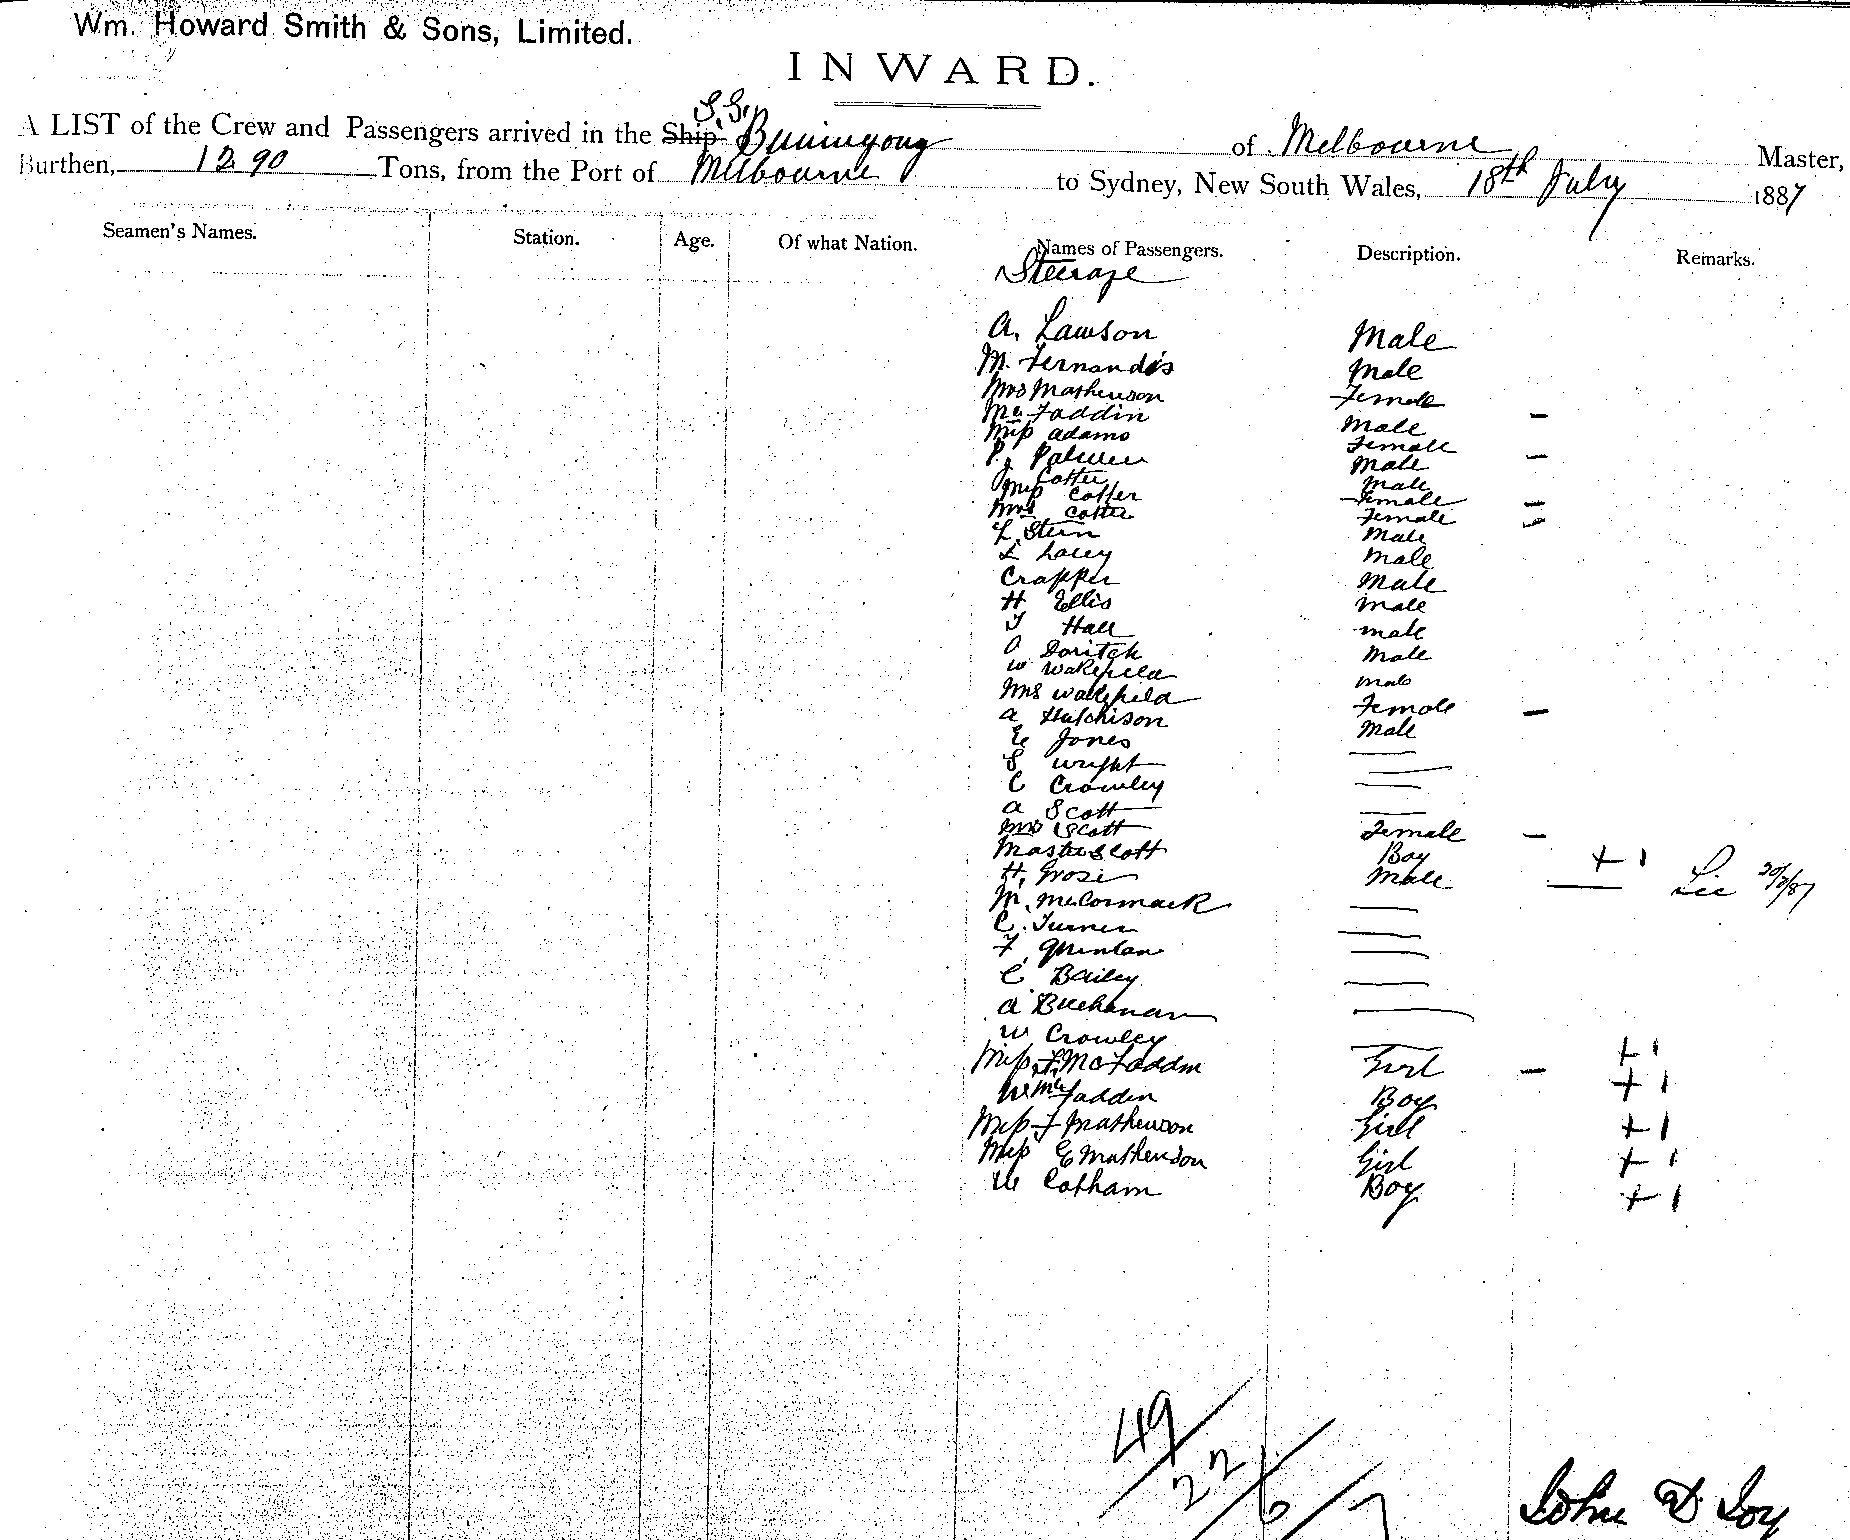 Wm. Howard Smith & Sons, Limited.
INWARD.
A LIST of the Crew and Passengers arrived in the Ship S.S. Buninyong of Melbourne Master,
Burthen, 1290 Tons, from the Port of Melbourne to Sydney, New South Wales, 18th July 1887
Seamen's Names. Station. Age. Of what Nation. Names of Passengers. Description. Remarks.
Steerage
A. Lawson Male
M. Fernandis Male
Mrs Mathewson Female
Mc Faddin Male –
Miss Adams Female
P. Palmer Male –
J Cotter Male
Miss Cotter Female –
Mrs Cotter Female –
L. Stern Male
L Lacey Male
Crapper Male
H Ellis Male
T Hall Male
A Doritch Male
W Wakefield Male
Mrs Wakefield Female –
A Hutchison Male
E Jones —
S Wright —
C Crowley —
A Scott —
Mrs Scott Female –
Master Scott Boy + 1
H. Grosi Male — 20/7/87
M. McCormack —
C. Turner —
F. Quinlan —
C Bailey —
A Buchanan —
W Crowley — + 1
Miss F. McFaddin Girl – + 1
W McFaddin Boy
Miss F Mathewson Girl + 1
Miss E Mathewson Girl + 1
W Cotham Boy + 1
49/22/6/7
John D